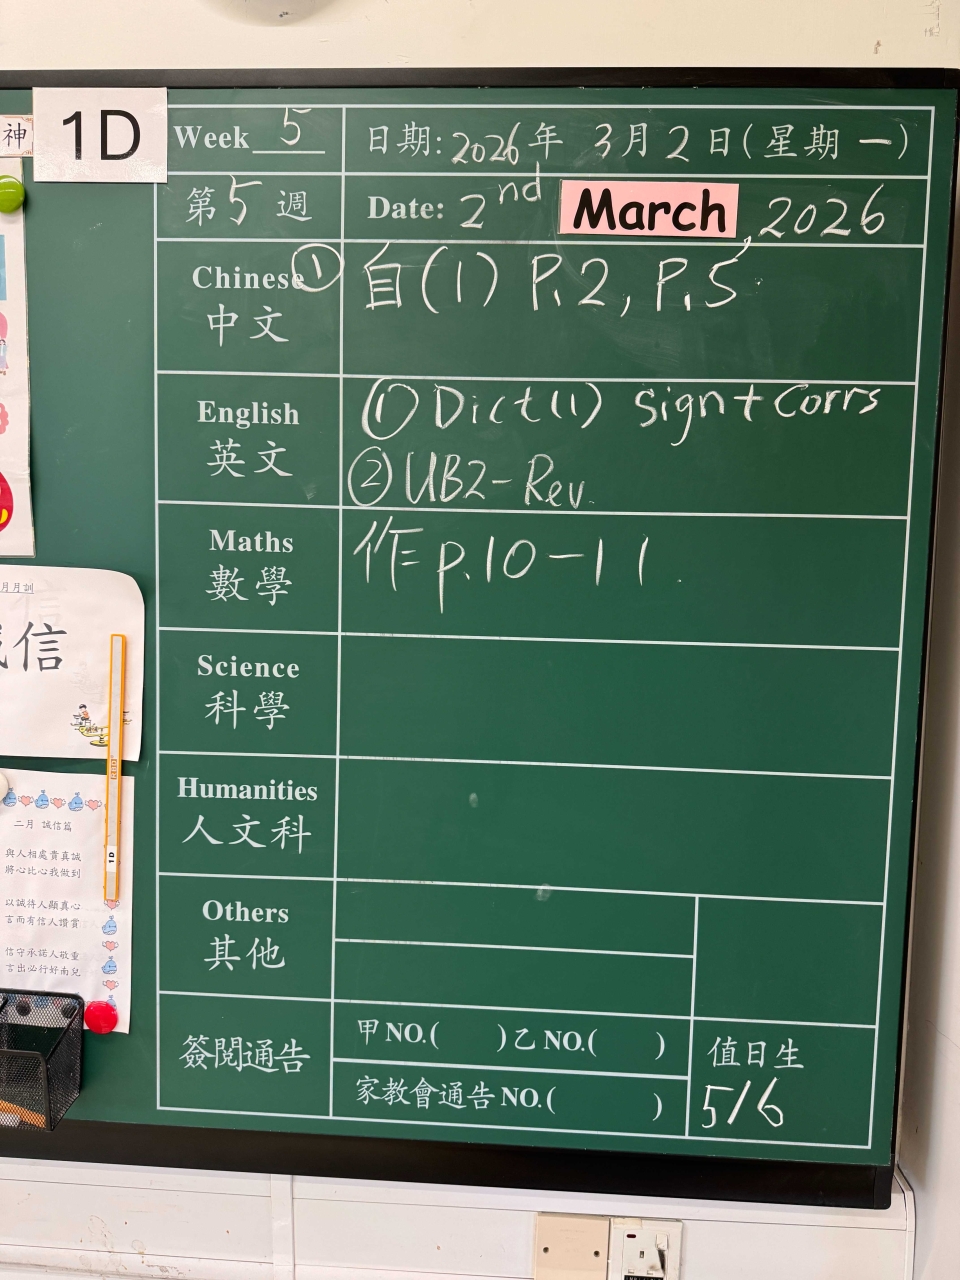 神
1D
Week 5
日期: 2026年 3月2日(星期一)
第5週
Date: 2nd March, 2026
Chinese
中文
① 自(1) P.2, P.5
English
英文
① Dict(1) Sign + Corrs
② UB2-Rev.
Maths
數學
作 p.10-11.
Science
科學
Humanities
人文科
Others
其他
簽閱通告
甲NO.( )乙NO.( )
家教會通告NO.( )
值日生
5/6
月月訓
信
1D
二月 誠信篇
與人相處貴真誠
將心比心我做到
以誠待人顯真心
言而有信人讚賞
信守承諾人敬重
言出必行好南兒